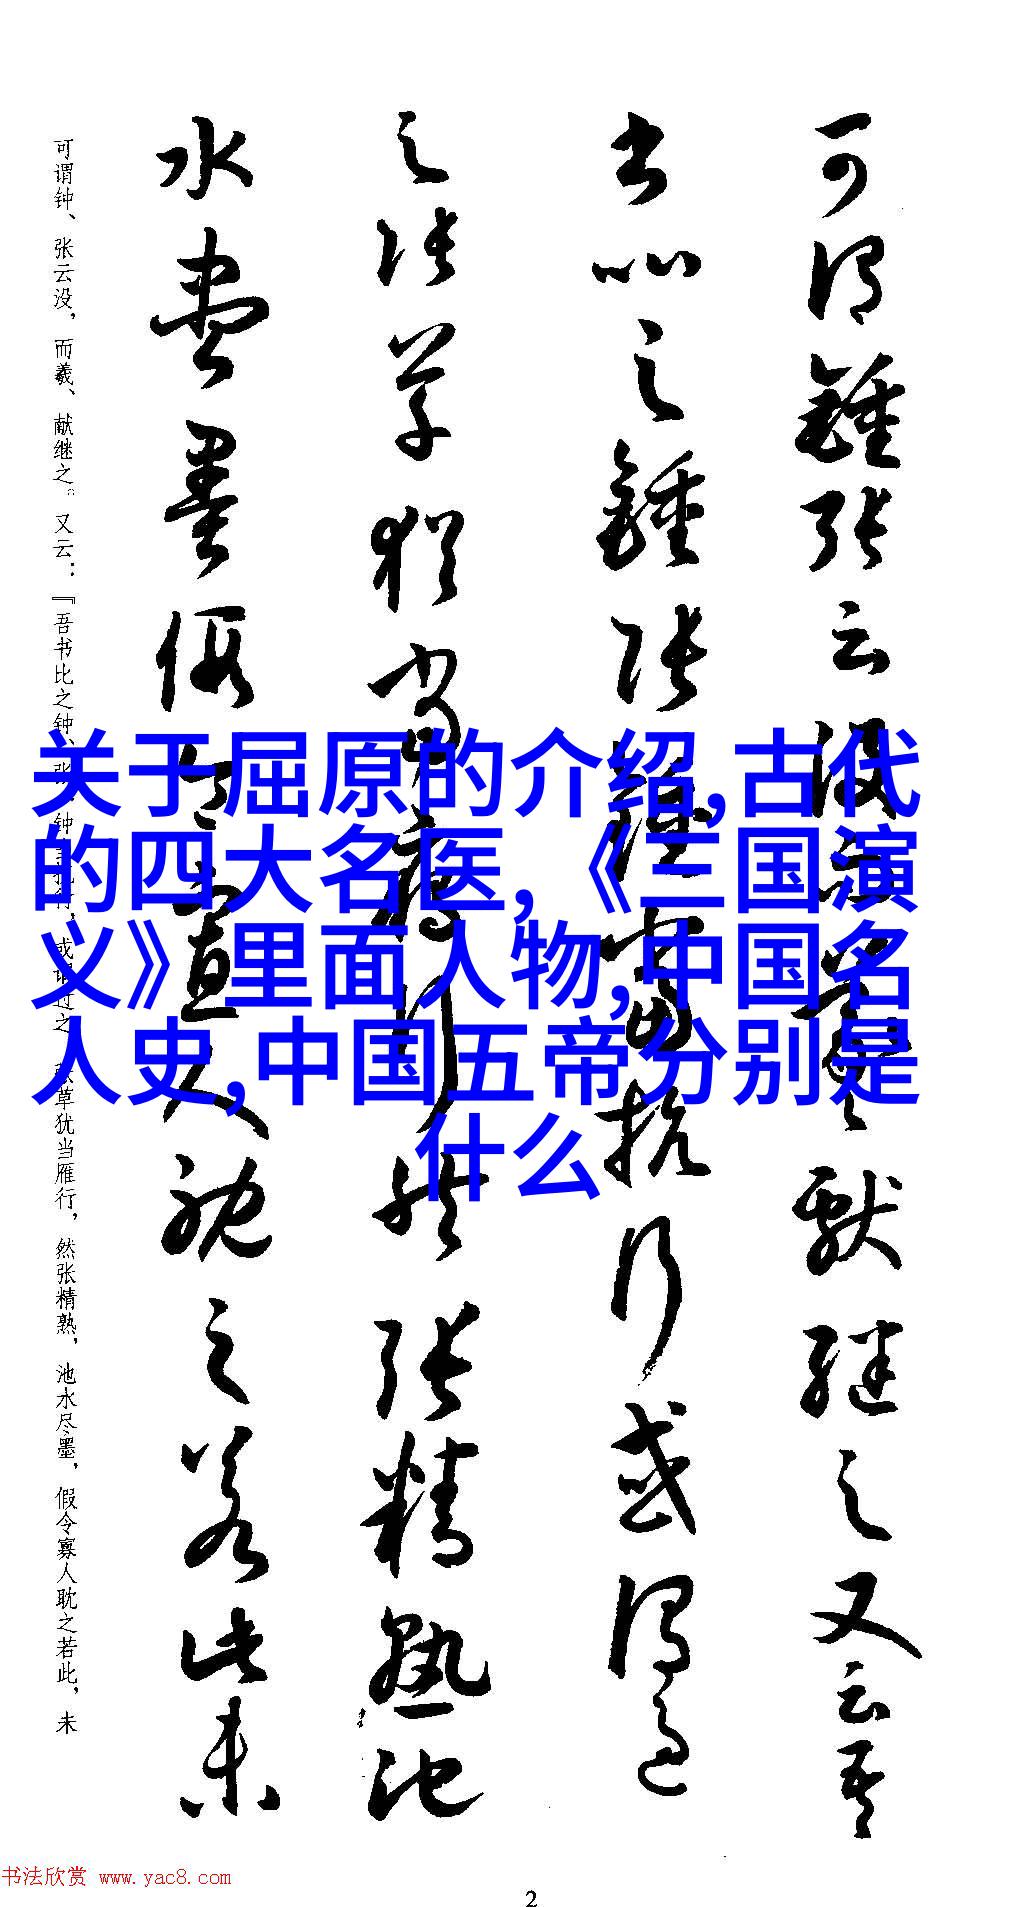 可謂鍾張云沒而羲獻継之又云吾
書比之鍾張鍾當抗行或謂過
之張草猶當雁行然張精熟池
水盡墨假令寡人耽之若此未
可谓钟、张云没，而羲、献继之。又云：『吾书比之钟、张，钟当抗行，或谓过之。张草犹当雁行，然张精熟，池水尽墨，假令寡人耽之若此，未
关于屈原的介绍,古代
的四大名医,《三国演
义》里面人物,中国名
人史,中国五帝分别是
什么
书法欣赏 www.yac8.com
2